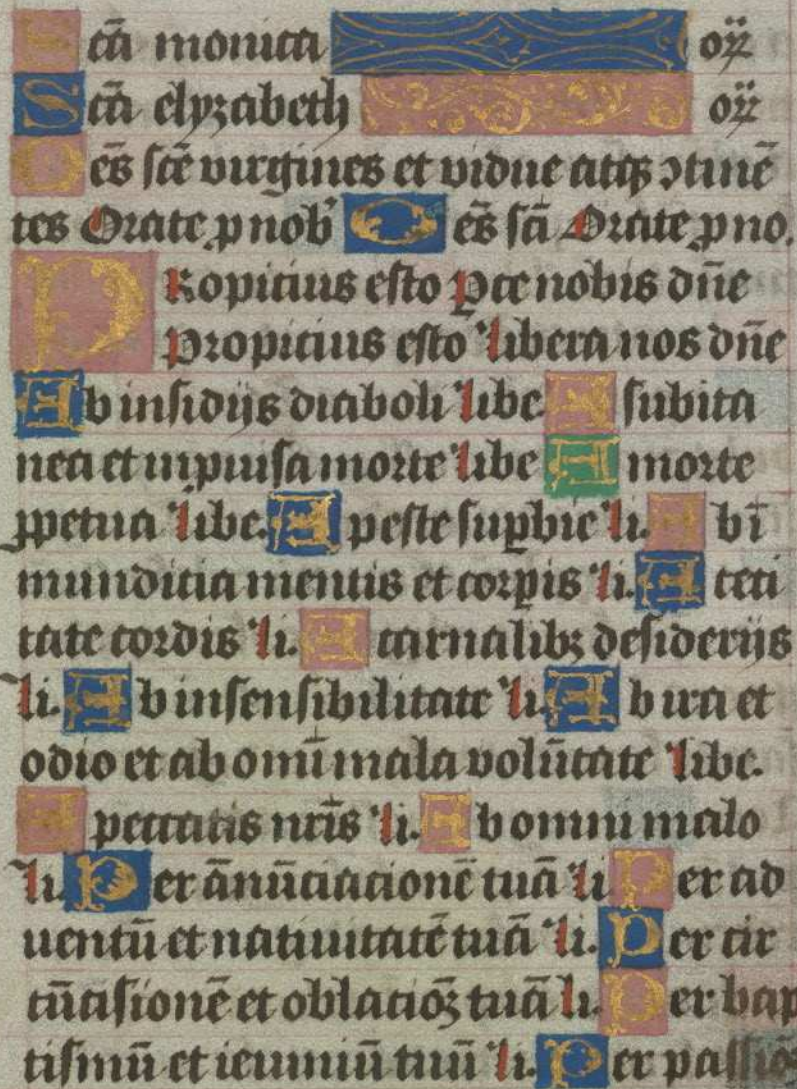 Scā monica or̄
Scā elyzabeth or̄
Oēs scē virgines et vidue atqꝫ ꝯtinē
tes Orate ꝓ nob' Oēs sc̄i Orate ꝓ no.
PRopicius esto ꝑce nobis dn̄e
Propicius esto libera nos dn̄e
Ab insidijs diaboli libe. A subita
nea et inpiuisa morte libe A morte
ꝑpetua libe. A peste suꝑbie li. Ab ī
mundicia mentis et corꝑis li. A ceci
tate cordis li. A carnalibꝫ desiderijs
li. Ab insensibilitate li. Ab ira et
odio et ab omī mala volūtate libe.
A peccatis nr̄is li. Ab omni malo
li. Per ānūciacionē tuā li Per ad
uentū et natiuitatē tuā li. Per cir
cūcisionē et oblacioꝫ tuā li. Per bap
tismū et ieiuniū tuū li. Per passioꝫ